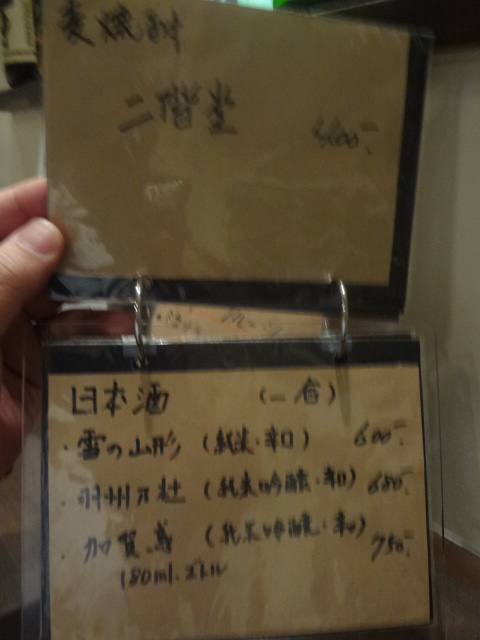 麦焼酎
二階堂
日本酒 (一合)
・雪の山形 (純米・辛口) 600ー.
・羽州 (純米吟醸・辛口) 680ー.
・加賀鳶 (純米吟醸・辛口) 750ー.
180ml.ボトル